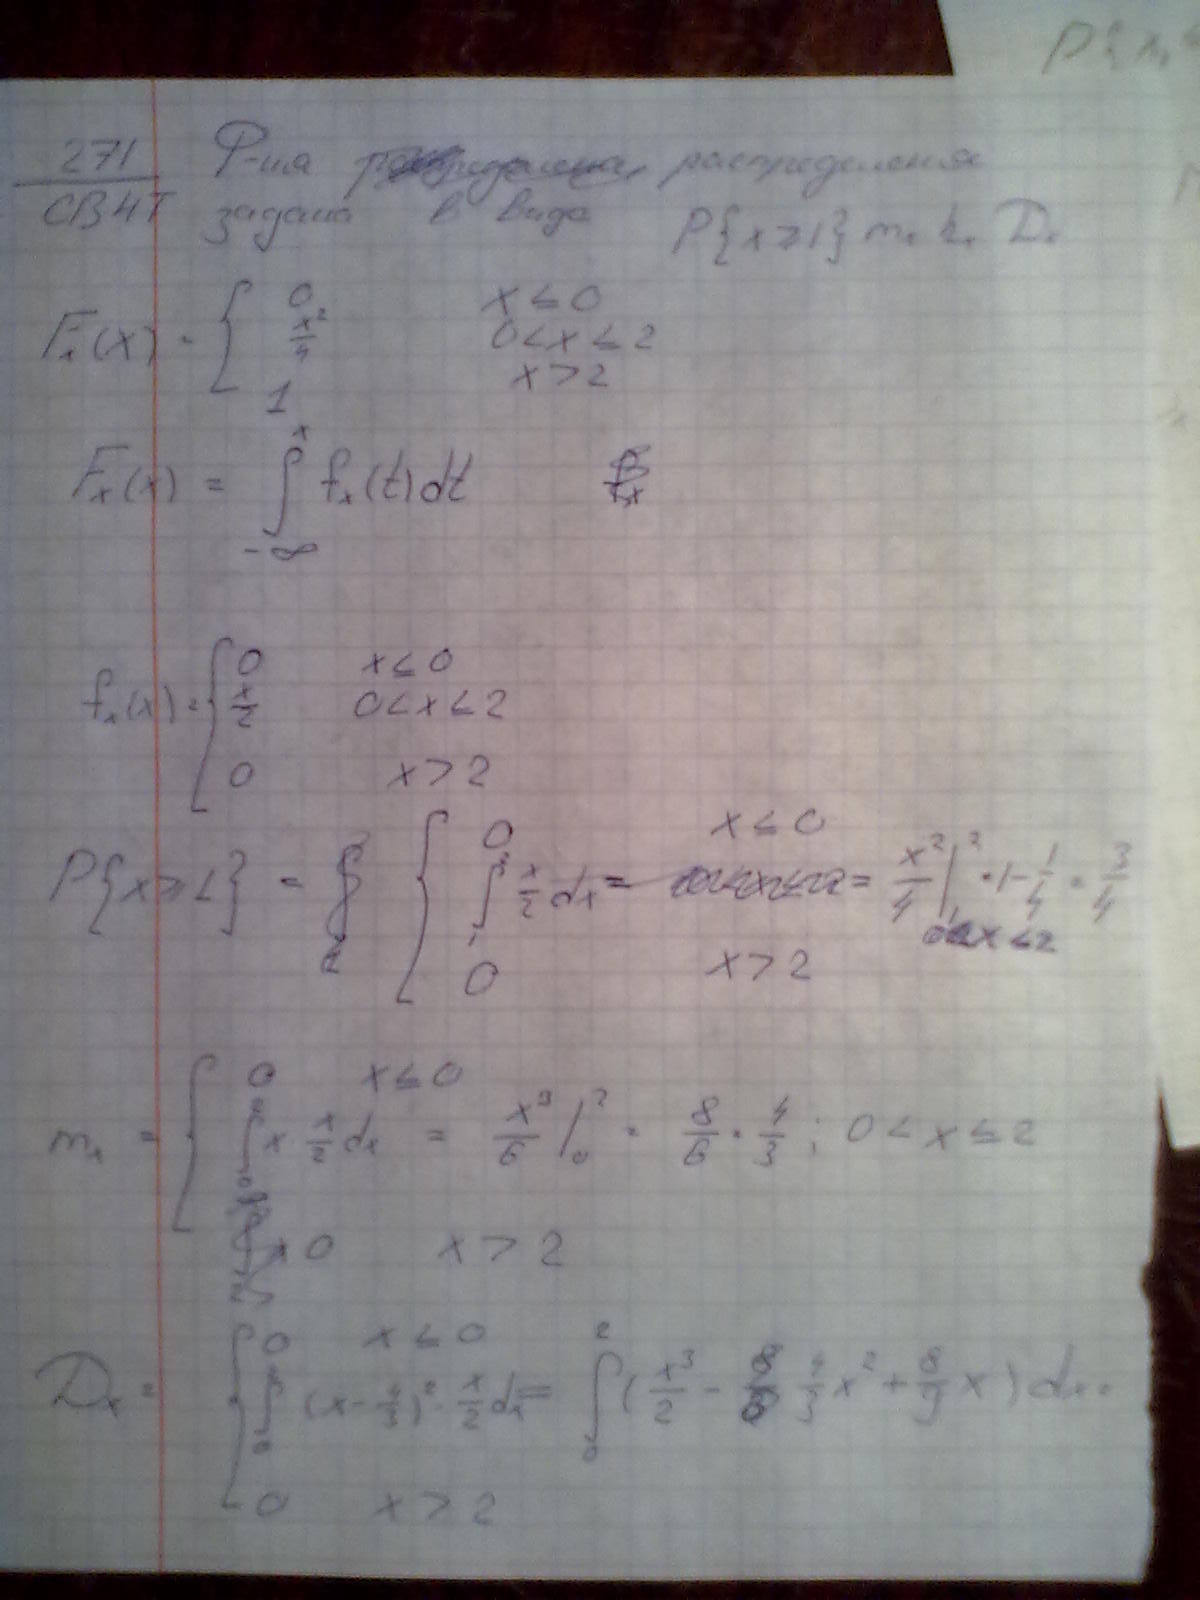 271 Ф-ия распределения
СВНТ задана в виде P{x≥1} mₓ Dₓ
Fₓ(x) = { 0 x ≤ 0
x²/4 0 < x ≤ 2
1 x > 2
Fₓ(x) = ∫_{-∞}^{x} fₓ(t)dt
fₓ(x) = { 0 x ≤ 0
x/2 0 < x ≤ 2
0 x > 2
P{x≥1} = { 0 x ≤ 0
∫_{1}^{2} x/2 dx = = x²/4 |_{1}^{2} = 1 - 1/4 = 3/4 0<x≤2
0 x > 2
mₓ = { 0 x ≤ 0
∫_{0}^{2} x x/2 dx = x³/6 |_{0}^{2} = 8/6 = 4/3 ; 0 < x ≤ 2
0 x > 2
Dₓ = { 0 x ≤ 0
∫_{0}^{2} (x - 4/3)² · x/2 dx = ∫_{0}^{2} (x³/2 - 4/3 x² + 8/9 x) dx =
0 x > 2